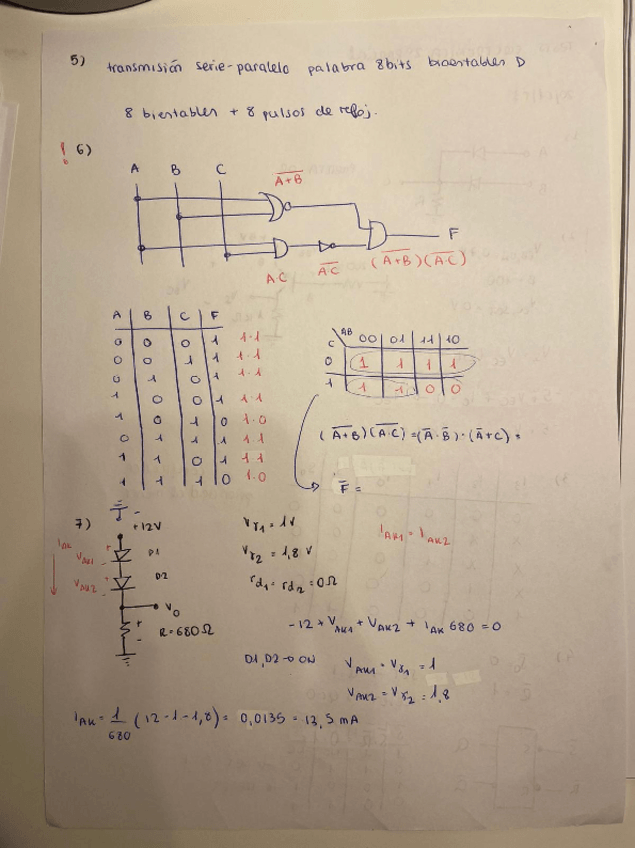 5) transmisión serie-paralelo palabra 8bits biestables D
8 biestables + 8 pulsos de reloj.
! 6)
A B C
A+B
F
AC A·C (A+B)(A·C)
A B C F
0 0 0 1 1·1
0 0 1 1 1·1
0 1 0 1 1·1
1 0 0 1 1·1
1 0 1 0 1·0
0 1 1 1 1·1
1 1 0 1 1·1
1 1 1 0 1·0
C AB 00 01 11 10
0 1 1 1 1
1 1 1 0 0
(A+B)(A·C) = (Ā·B̄)·(Ā+C) =
F̄ =
7) +12V
iAK
VAK1 D1
VAK2 D2
Vo
R=680Ω
Vγ1 = 1V
Vγ2 = 1,8 V
rd1 = rd2 = 0Ω
iAK1 = iAK2
-12 + VAK1 + VAK2 + iAK 680 = 0
D1, D2 → ON VAK1 = Vγ1 = 1
VAK2 = Vγ2 = 1,8
iAK = 1/680 (12-1-1,8) = 0,0135 = 13,5 mA